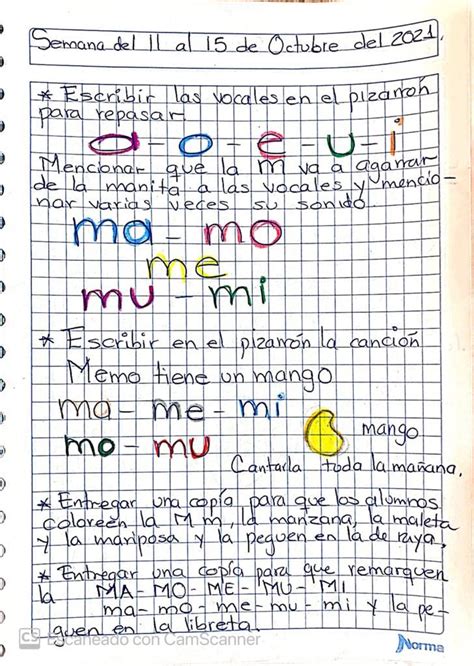 Semana del 11 al 15 de Octubre del 2021.
* Escribir las vocales en el pizarrón
para repasar.
a - o - e - u - i
Mencionar que la m va a agarrar
de la manita a las vocales y mencio-
nar varias veces su sonido.
ma - mo
me
mu - mi
* Escribir en el pizarrón la canción
Memo tiene un mango
ma - me - mi
mo - mu
mango
Cantarla toda la mañana.
* Entregar una copia para que los alumnos
coloreen la M m, la manzana, la maleta
y la mariposa y la peguen en la de raya.
* Entregar una copia para que remarquen
la MA - MO - ME - MU - MI
ma - mo - me - mu - mi y la pe-
guen en la libreta.
CS Escaneado con CamScanner
Norma